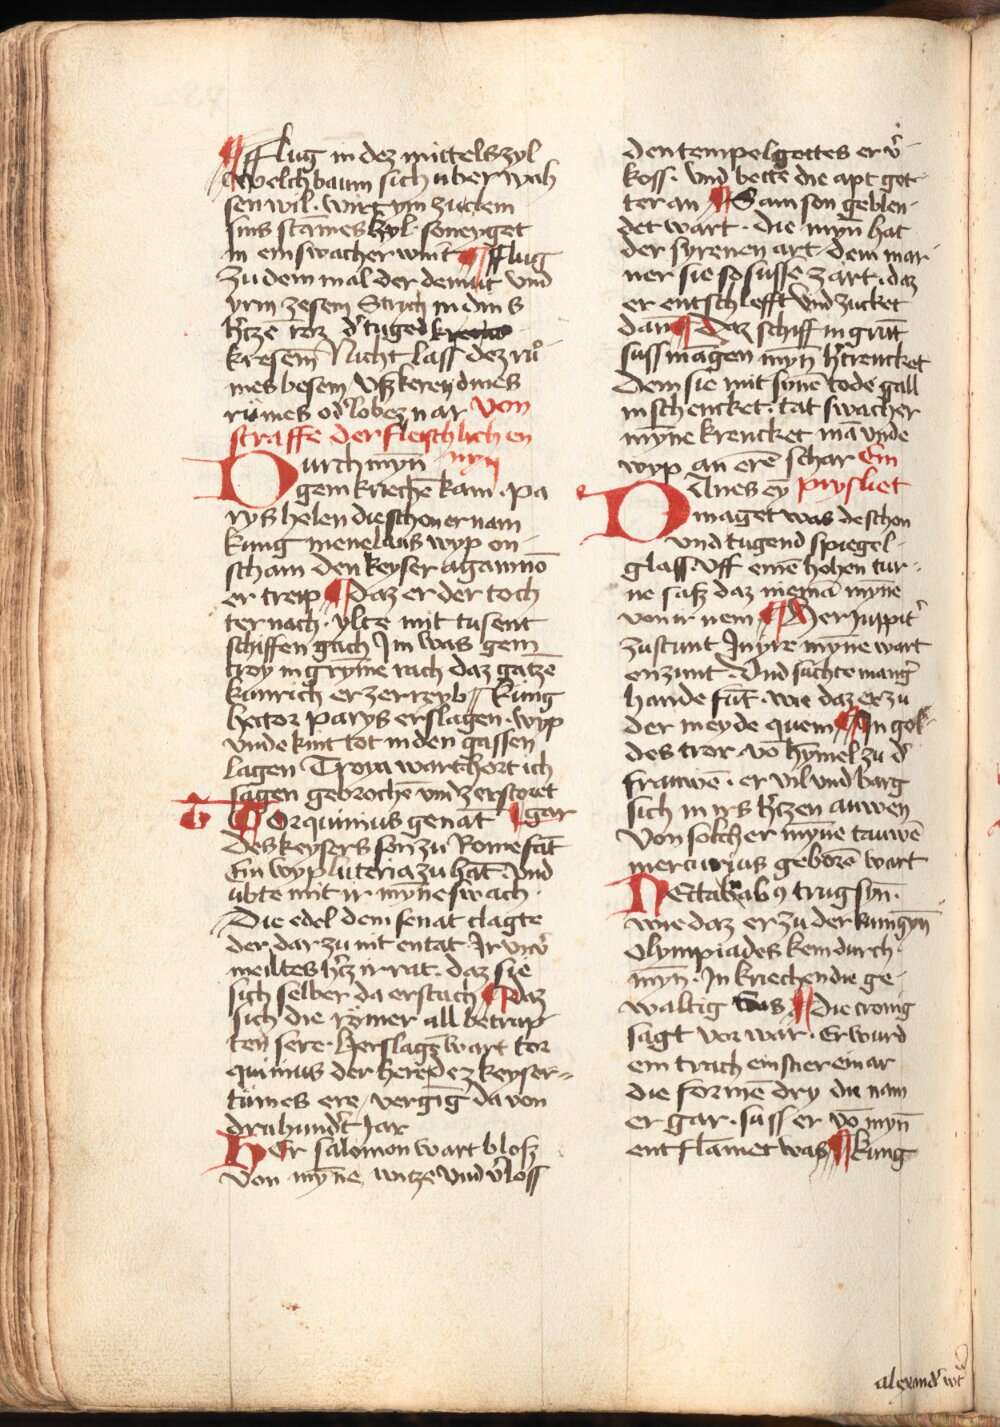 ¶ Flug in dez mittels zyl
Welch baum sich uber wah
sen wil · wirt ym zu dem
sins stāmes hyl · so nyget
in ein swacher wint ¶ Flug
zu dem mal der demut und
yrm zesem Strych in din s
h'tze roz d' tuged
kresem Nicht lass dez rů
mes besem Usz keren dines
rumes od' lobez nar Von
straffe der fleischlichen
Durch myn̄ myn̄
gem kriechē kam · Pa
rys helen die schon er nam
kung menelaus wyp on
scham den keyser agamno
er treip ¶ Daz er der toch
ter nach · ylte mit tusent
schiffen gach Im was gem
troy in grym̄e rach daz gātze
kunrich er zerreyb ¶ Kūng
hector parys erslagen · wyp
unde kint tot in den gassen
lagen Troya wart hort ich
sagen gebrochē und zerstoret
Torquinius genāt ¶ gar
Des keysers son zu Rome fāt
Ein wyp luteria zu hāt · Und
ubte mit ir myn̄e swach ·
Die edel dem senat clagte
der dar zu nit entat Ir vnv'
meiltes h'tz ir rat · daz sie
sich selber da erstach ¶ Daz
sich die Römer all betrup
ten sere · Herslagē wart tor
quinius der here dez keyser=
tumes ere / vergīg da von
druhund't Jar
Her salomon wart blosz
von myn̄e witze vnd v'loss
den tempel gottes er v'
koss · Und bette die apt got
ter an ¶ Samson geblen
det wart · Die myn̄ hat
der syrenen art · dem mar
ner sie so susse zart · daz
er entschlefft Und zucket
dan ¶ Daz schiff in grūt
suss mangen myn̄ h'trencket
Dem sie mit synē tode gall
in schencket · tat swacher
myn̄e krencket mā unde
wyp an erē schar Ein
Danes ey prysliet
maget was de schon
und tugend spiegel
glass Uff einē hohen tur
ne sasz daz niemā myn̄e
von ir nem ¶ Der Juppit'
zu stunt In yre myn̄e wart
enzunt · Und suchte mang'
hande fūt · wie daz er zu
der meyde quem ¶ In gol
des tror · vō hym̄el zu d'
frauwē · er vil und barg
sich in irs h'tzen auwen
Von solcher myn̄e tauwē
mercurius geborē wart
Nectabab9 trug syn̄ ·
wie daz er zu der kunigyn̄
Olympiades kem durch
myn̄ · In kriechen die ge
waltig was ¶ Die cronig
sagt vor war · Er wurd
ein trach ein stier ein ar
die formē dry du nam
er gar · suss er vō myn̄
entflāmet was ¶ kung
alexand' wt